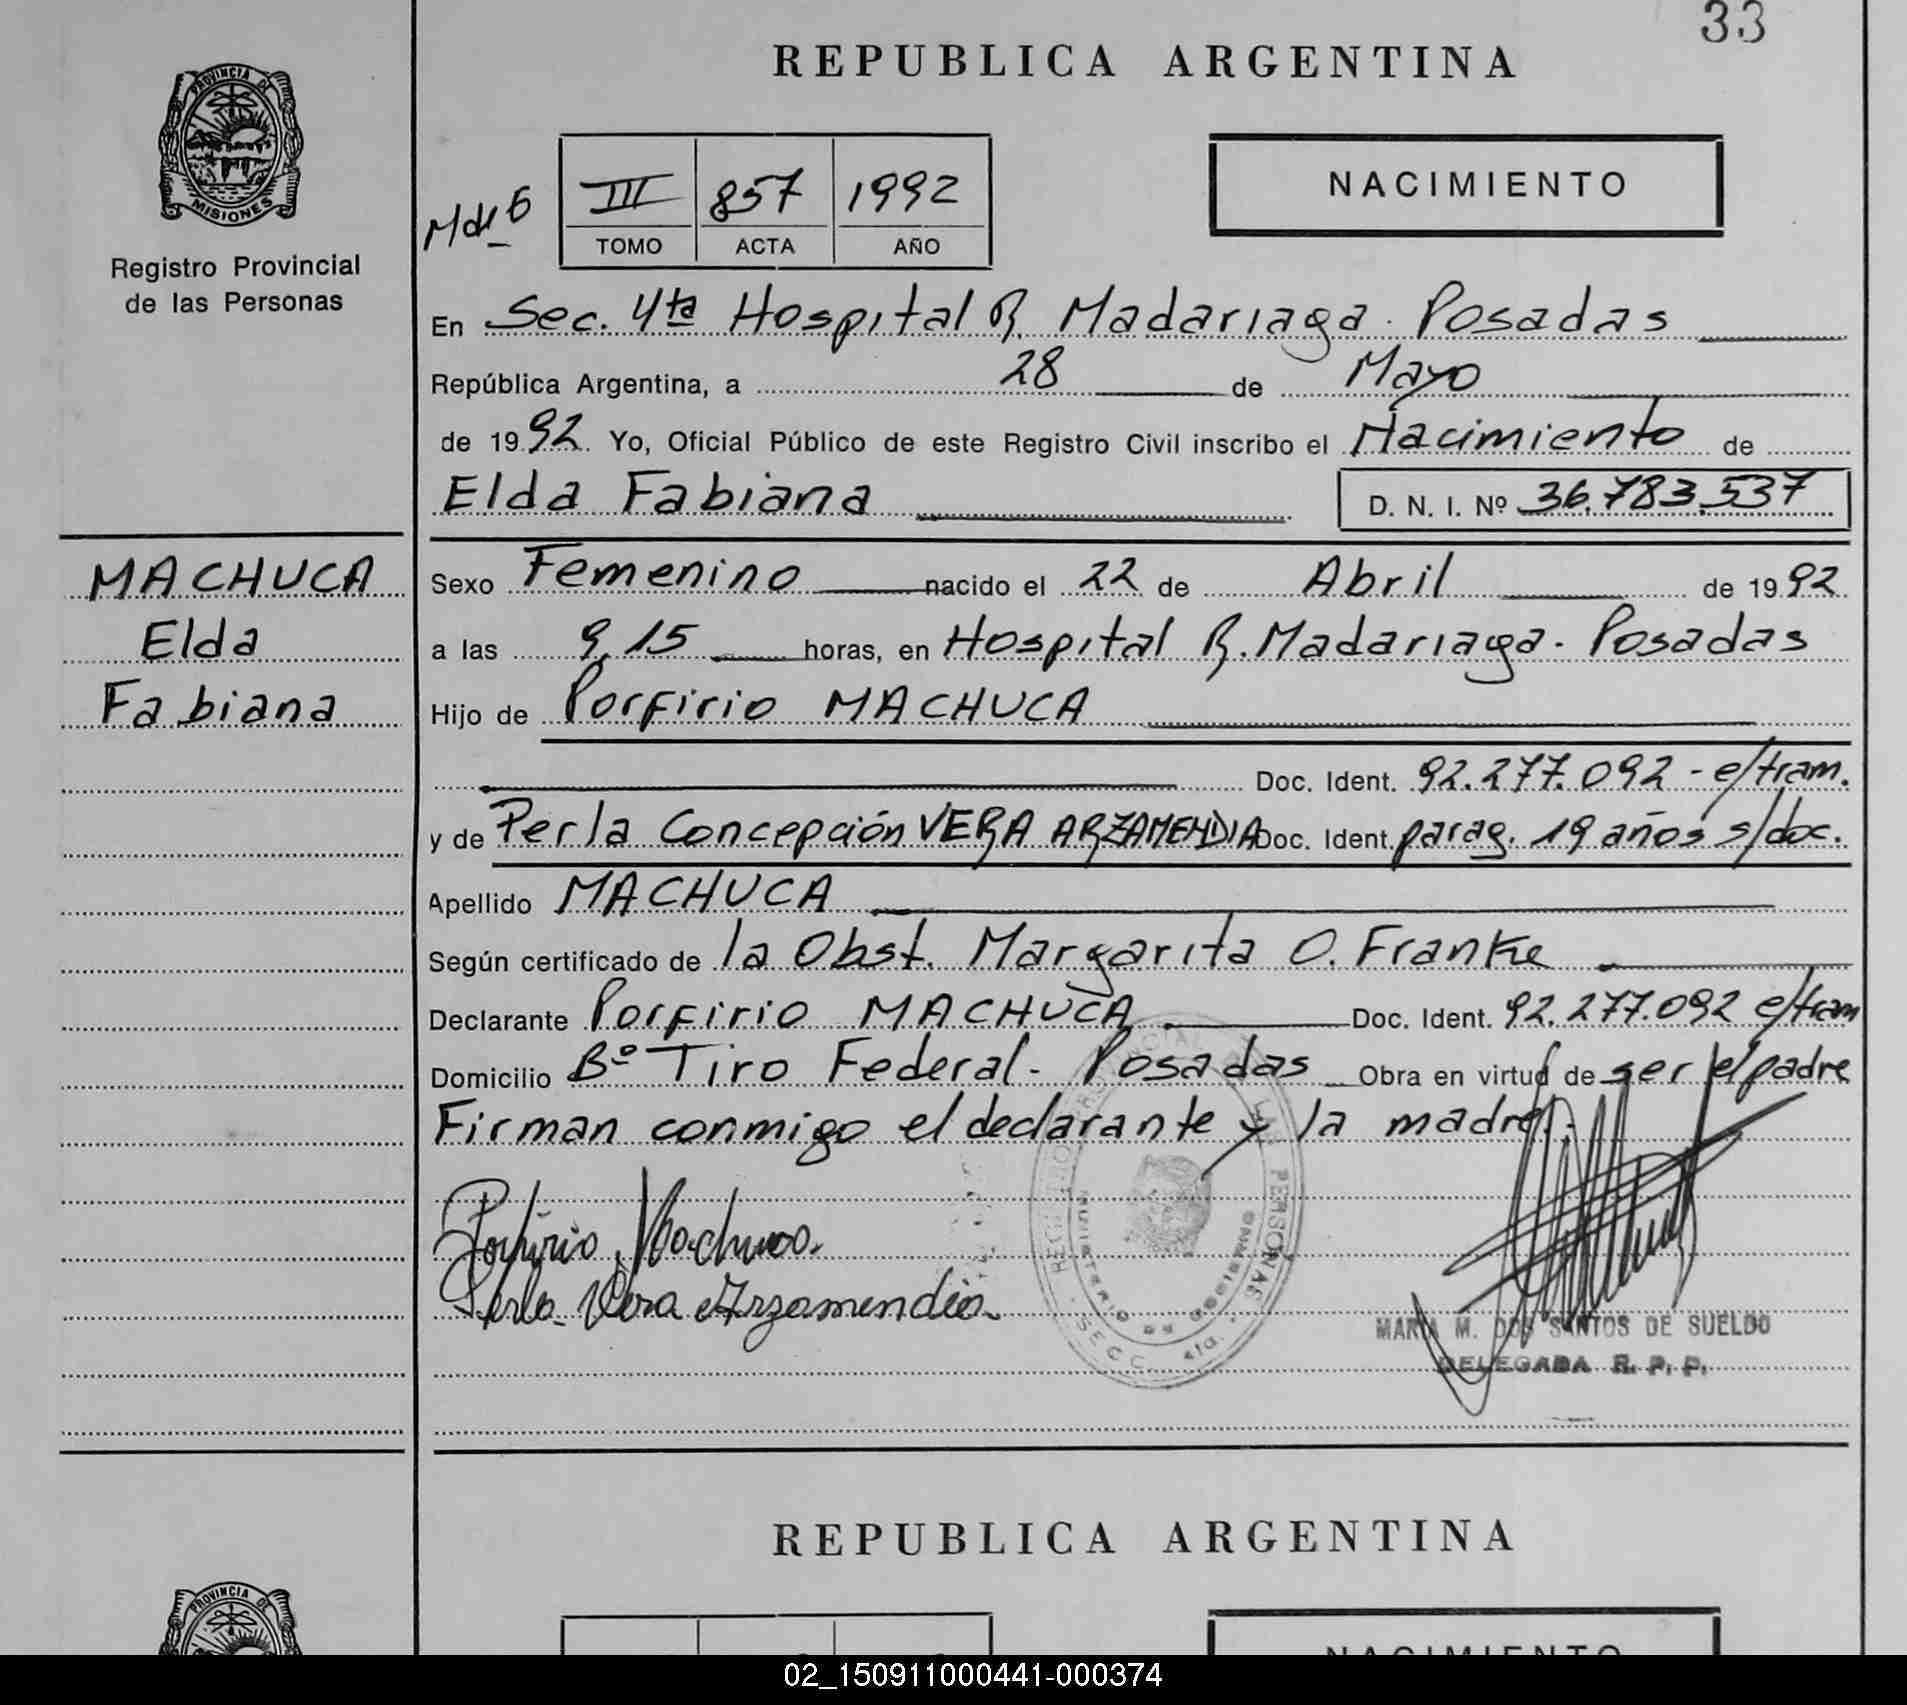 33
REPUBLICA ARGENTINA
PROVINCIA DE
MISIONES
Registro Provincial
de las Personas
III 857 1992
TOMO ACTA AÑO
NACIMIENTO
En Sec. 4ta Hospital R. Madariaga. Posadas
República Argentina, a 28 de Mayo
de 1992. Yo, Oficial Público de este Registro Civil inscribo el Nacimiento de
Elda Fabiana D. N. I. Nº 36.783.537
MACHUCA
Elda
Fabiana
Sexo Femenino nacido el 22 de Abril de 1992
a las 9,15 horas, en Hospital R. Madariaga. Posadas
Hijo de Porfirio MACHUCA
Doc. Ident. 92.277.092 - e/tram.
y de Perla Concepción VERA ARZAMENDIA Doc. Ident. parag. 19 años s/doc.
Apellido MACHUCA
Según certificado de la Obst. Margarita O. Franke
Declarante Porfirio MACHUCA Doc. Ident. 92.277.092 e/tram
Domicilio Bº Tiro Federal - Posadas Obra en virtud de ser el padre
Firman conmigo el declarante y la madre.
Porfirio Machuca.
Perla Vera Arzamendia
MINISTERIO DE GOBIERNO
SECC. 4ta.
MARIA M. DOS SANTOS DE SUELDO
DELEGADA R. P. P.
REPUBLICA ARGENTINA
PROVINCIA DE
NACIMIENTO
02_150911000441-000374